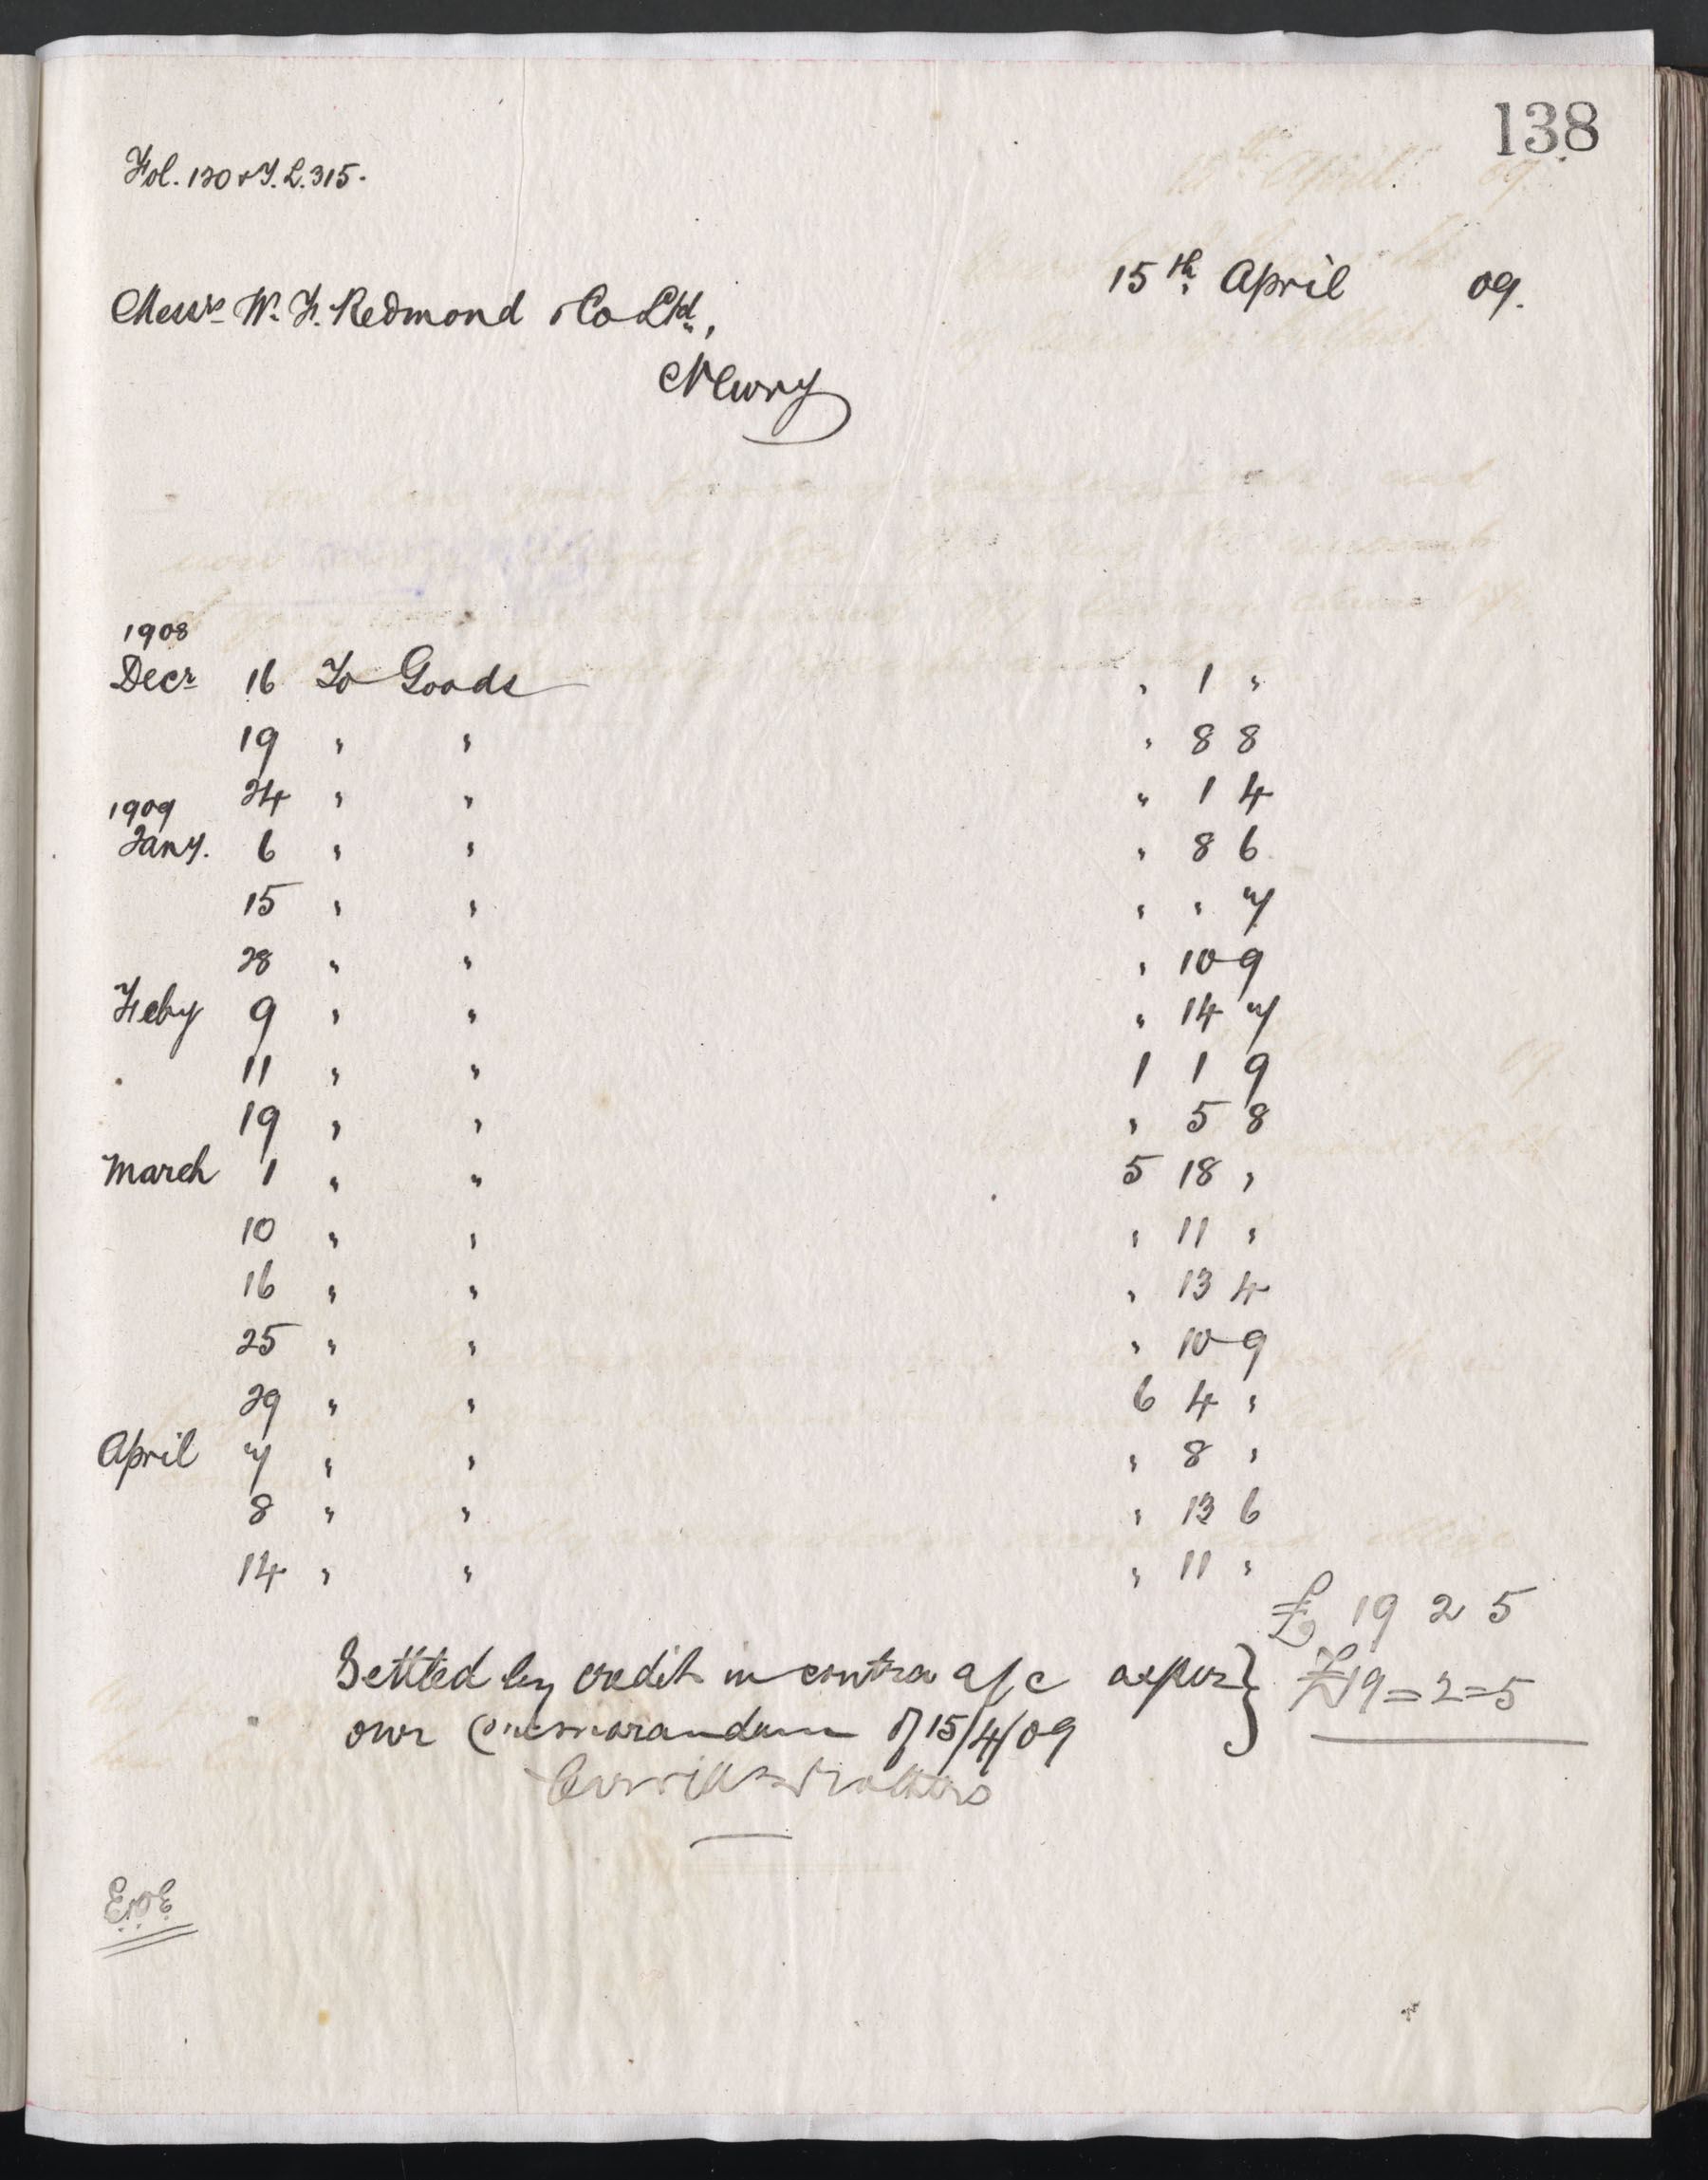 138
Fol. 120 & I. L. 315.
15th April 09.
Messrs W. F. Redmond & Co Ltd,
Newry
1908
Decr 16 To Goods " 1 "
19 " " " 8 8
24 " " " 1 4
1909
Jany. 6 " " " 8 6
15 " " " " 7
28 " " " 10 9
Feby 9 " " " 14 7
11 " " 1 1 9
19 " " " 5 8
March 1 " " 5 18 "
10 " " " 11 "
16 " " " 13 4
25 " " " 10 9
29 " " 6 4 "
April 7 " " " 8 "
8 " " " 13 6
14 " " " 11 "
£ 19 2 5
Settled by credit in contra a/c as per } £19=2=5
our memorandum of 15/4/09
Brothers
E.&O.E.